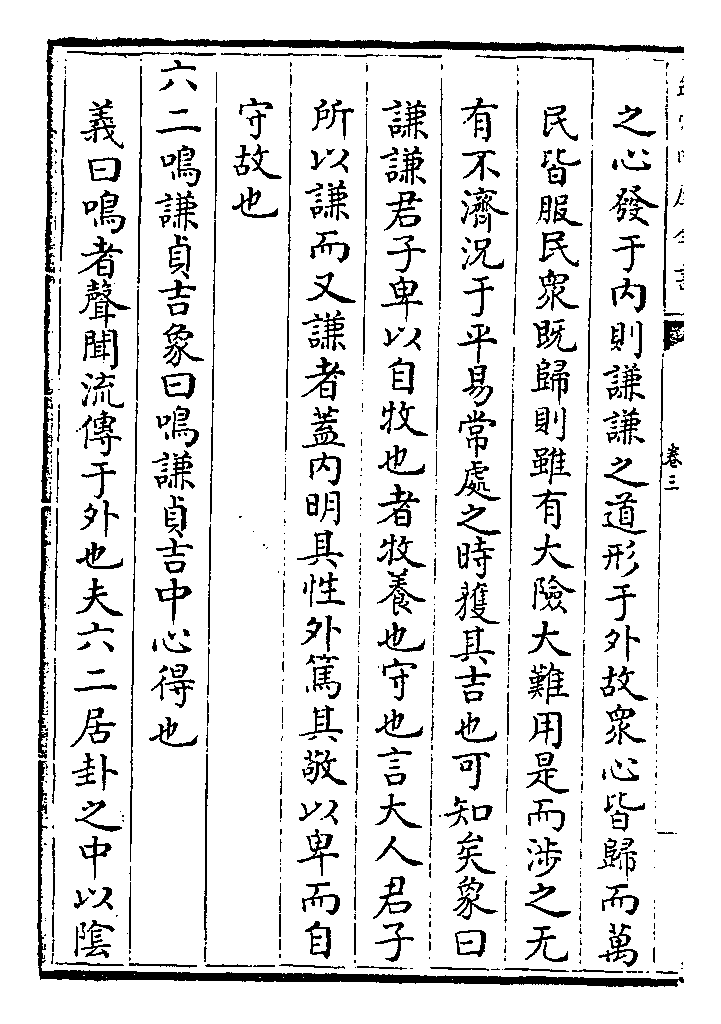 卷三
之心發于内則謙謙之道形于外故衆心皆歸而萬
民皆服民衆既歸則雖有大險大難用是而涉之无
有不濟況于平易常處之時獲其吉也可知矣象曰
謙謙君子卑以自牧也者牧養也守也言大人君子
所以謙而又謙者蓋内明其性外篤其敬以卑而自
守故也
六二鳴謙貞吉象曰鳴謙貞吉中心得也
義曰鳴者聲聞流傳于外也夫六二居卦之中以陰